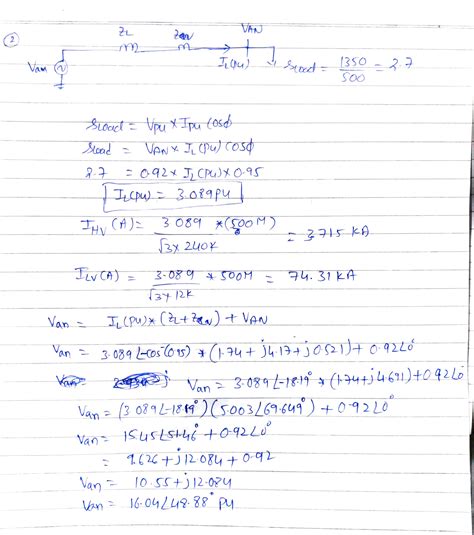 2
ZL
VAN
Van
IL(pu)
Sload = 1350/500 = 2.7
Sload = Vpu × Ipu cosφ
Sload = VAN × IL(pu) cosφ
2.7 = 0.92 × IL(pu) × 0.95
IL(pu) = 3.089 PU
IHV (A) = 3.089/√3 × 240K * (500M) = 3.715 KA
ILV(A) = 3.089/√3 × 12K * 500M = 74.31 KA
Van = IL(pu) * (ZL + ) + VAN
Van = 3.089∠-cos⁻¹(0.95) * (1.74 + j4.17 + j0.521) + 0.92∠0°
Van = 3.089∠-18.19° * (1.74 + j4.691) + 0.92∠0°
Van = (3.089∠-18.19°)(5.003∠69.649°) + 0.92∠0°
Van = 15.45∠51.46° + 0.92∠0°
= 9.626 + j12.084 + 0.92
Van = 10.55 + j12.084
Van = 16.04∠48.88° PU